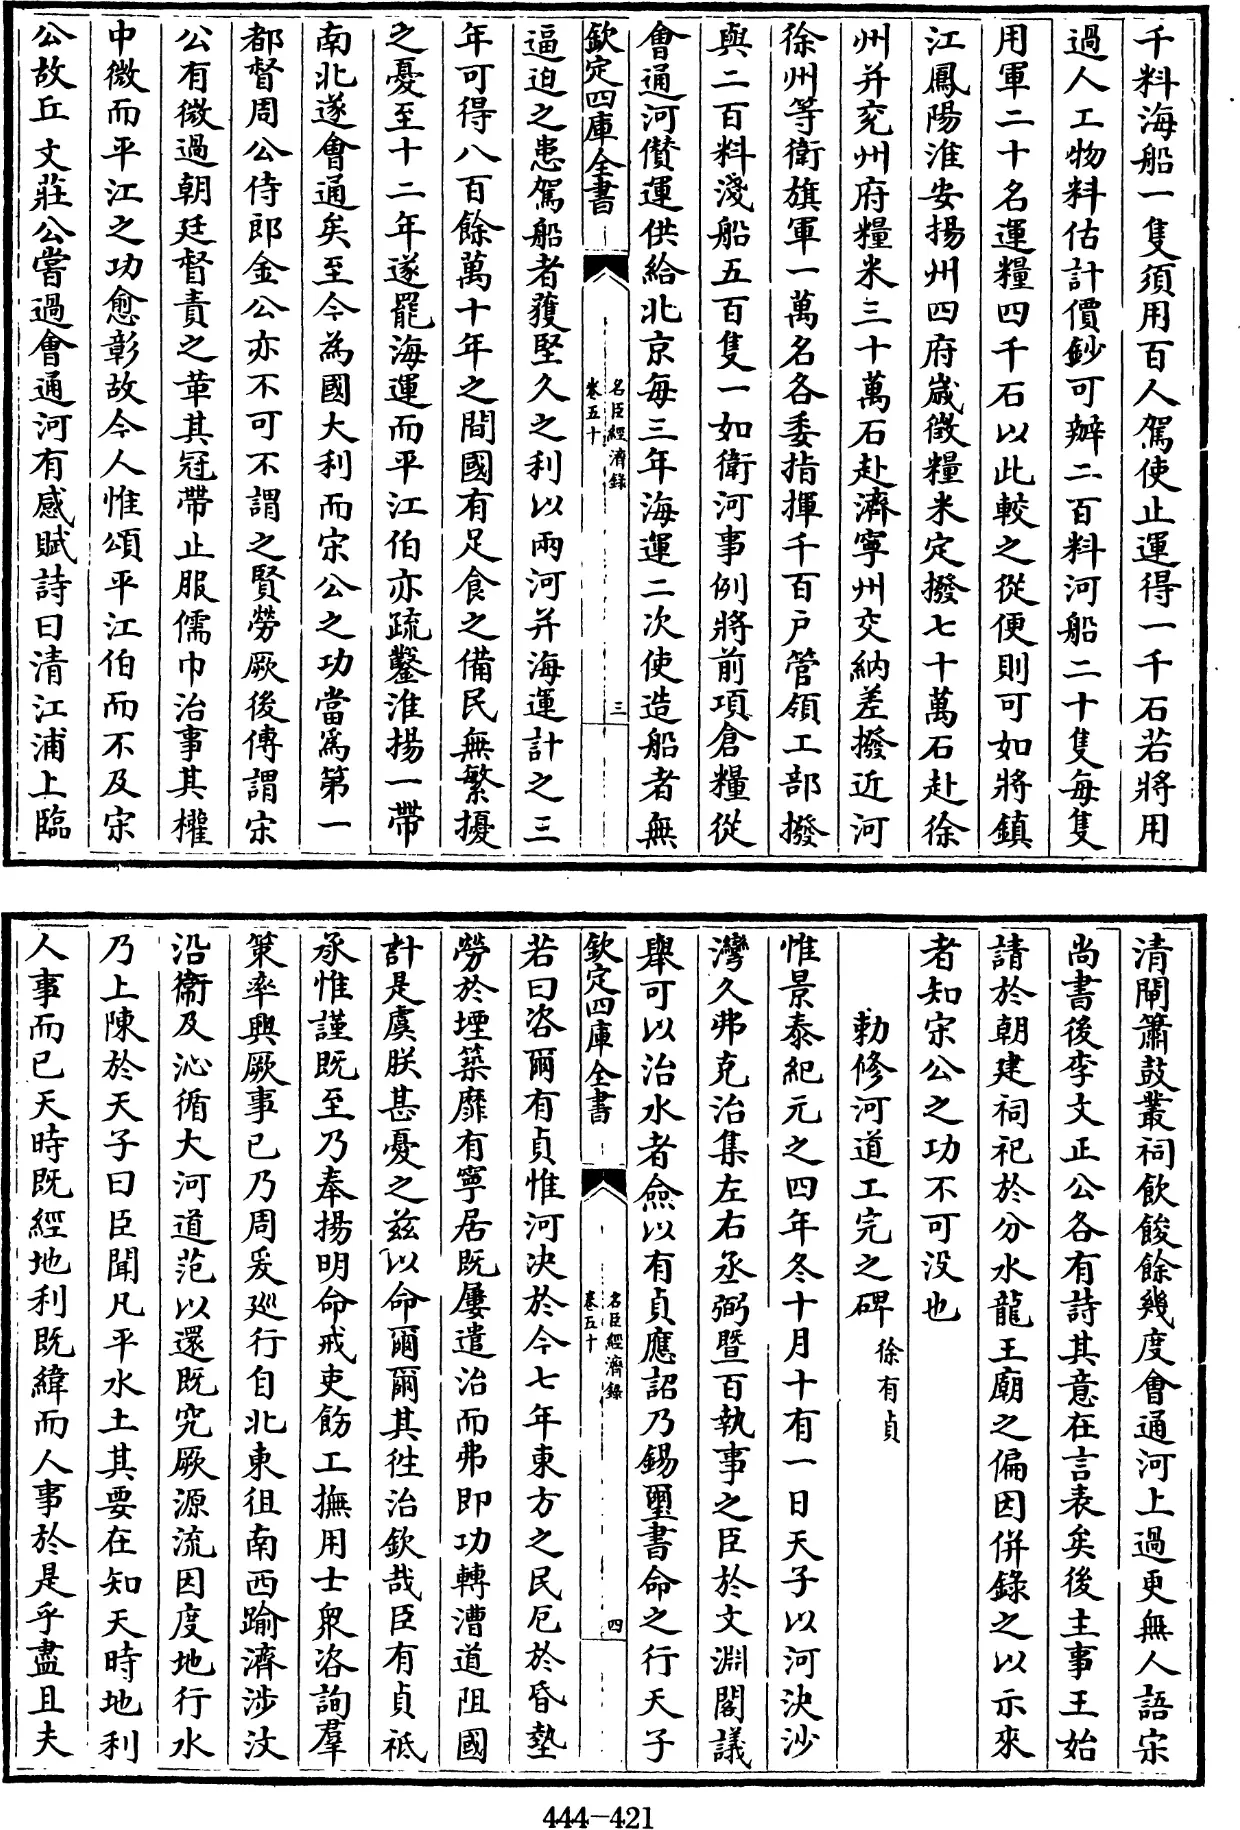 千料海船一隻須用百人駕使止運得一千石若將用
過人工物料估計價鈔可辦二百料河船二十隻每隻
用軍二十名運糧四千石以此較之從便則可如將鎮
江鳳陽淮安揚州四府歲徵糧米定撥七十萬石赴徐
州并兖州府糧米三十萬石赴濟寧州交納差撥近河
徐州等衛旗軍一萬名各委指揮千百户管領工部撥
與二百料淺船五百隻一如衛河事例將前項倉糧從
會通河儹運供給北京每三年海運二次使造船者無
欽定四庫全書
名臣經濟錄
卷五十
三
逼迫之患駕船者獲堅久之利以兩河并海運計之三
年可得八百餘萬十年之間國有足食之備民無繁擾
之憂至十二年遂罷海運而平江伯亦疏鑿淮揚一帶
南北遂會通矣至今為國大利而宋公之功當為第一
都督周公侍郎金公亦不可不謂之賢勞厥後傳謂宋
公有微過朝廷督責之革其冠帶止服儒巾治事其權
中微而平江之功愈彰故今人惟頌平江伯而不及宋
公故丘文莊公嘗過會通河有感賦詩曰清江浦上臨
清閘簫鼓叢祠飲餕餘幾度會通河上過更無人語宋
尚書後李文正公各有詩其意在言表矣後主事王始
請於朝建祠祀於分水龍王廟之偏因併錄之以示來
者知宋公之功不可没也
勅修河道工完之碑 徐有貞
惟景泰紀元之四年冬十月十有一日天子以河決沙
灣久弗克治集左右丞弼暨百執事之臣於文淵閣議
舉可以治水者僉以有貞應詔乃錫璽書命之行天子
欽定四庫全書
名臣經濟錄
卷五十
四
若曰咨爾有貞惟河決於今七年東方之民厄於昏墊
勞於堙築靡有寧居既屢遣治而弗即功轉漕道阻國
計是虞朕甚憂之兹以命爾爾其徃治欽哉臣有貞祗
承惟謹既至乃奉揚明命戒吏飭工撫用士衆咨詢羣
策率興厥事已乃周爰廵行自北東徂南西踰濟涉汶
沿衞及沁循大河道范以還既究厥源流因度地行水
乃上陳於天子曰臣聞凡平水土其要在知天時地利
人事而已天時既經地利既緯而人事於是乎盡且夫
444-421